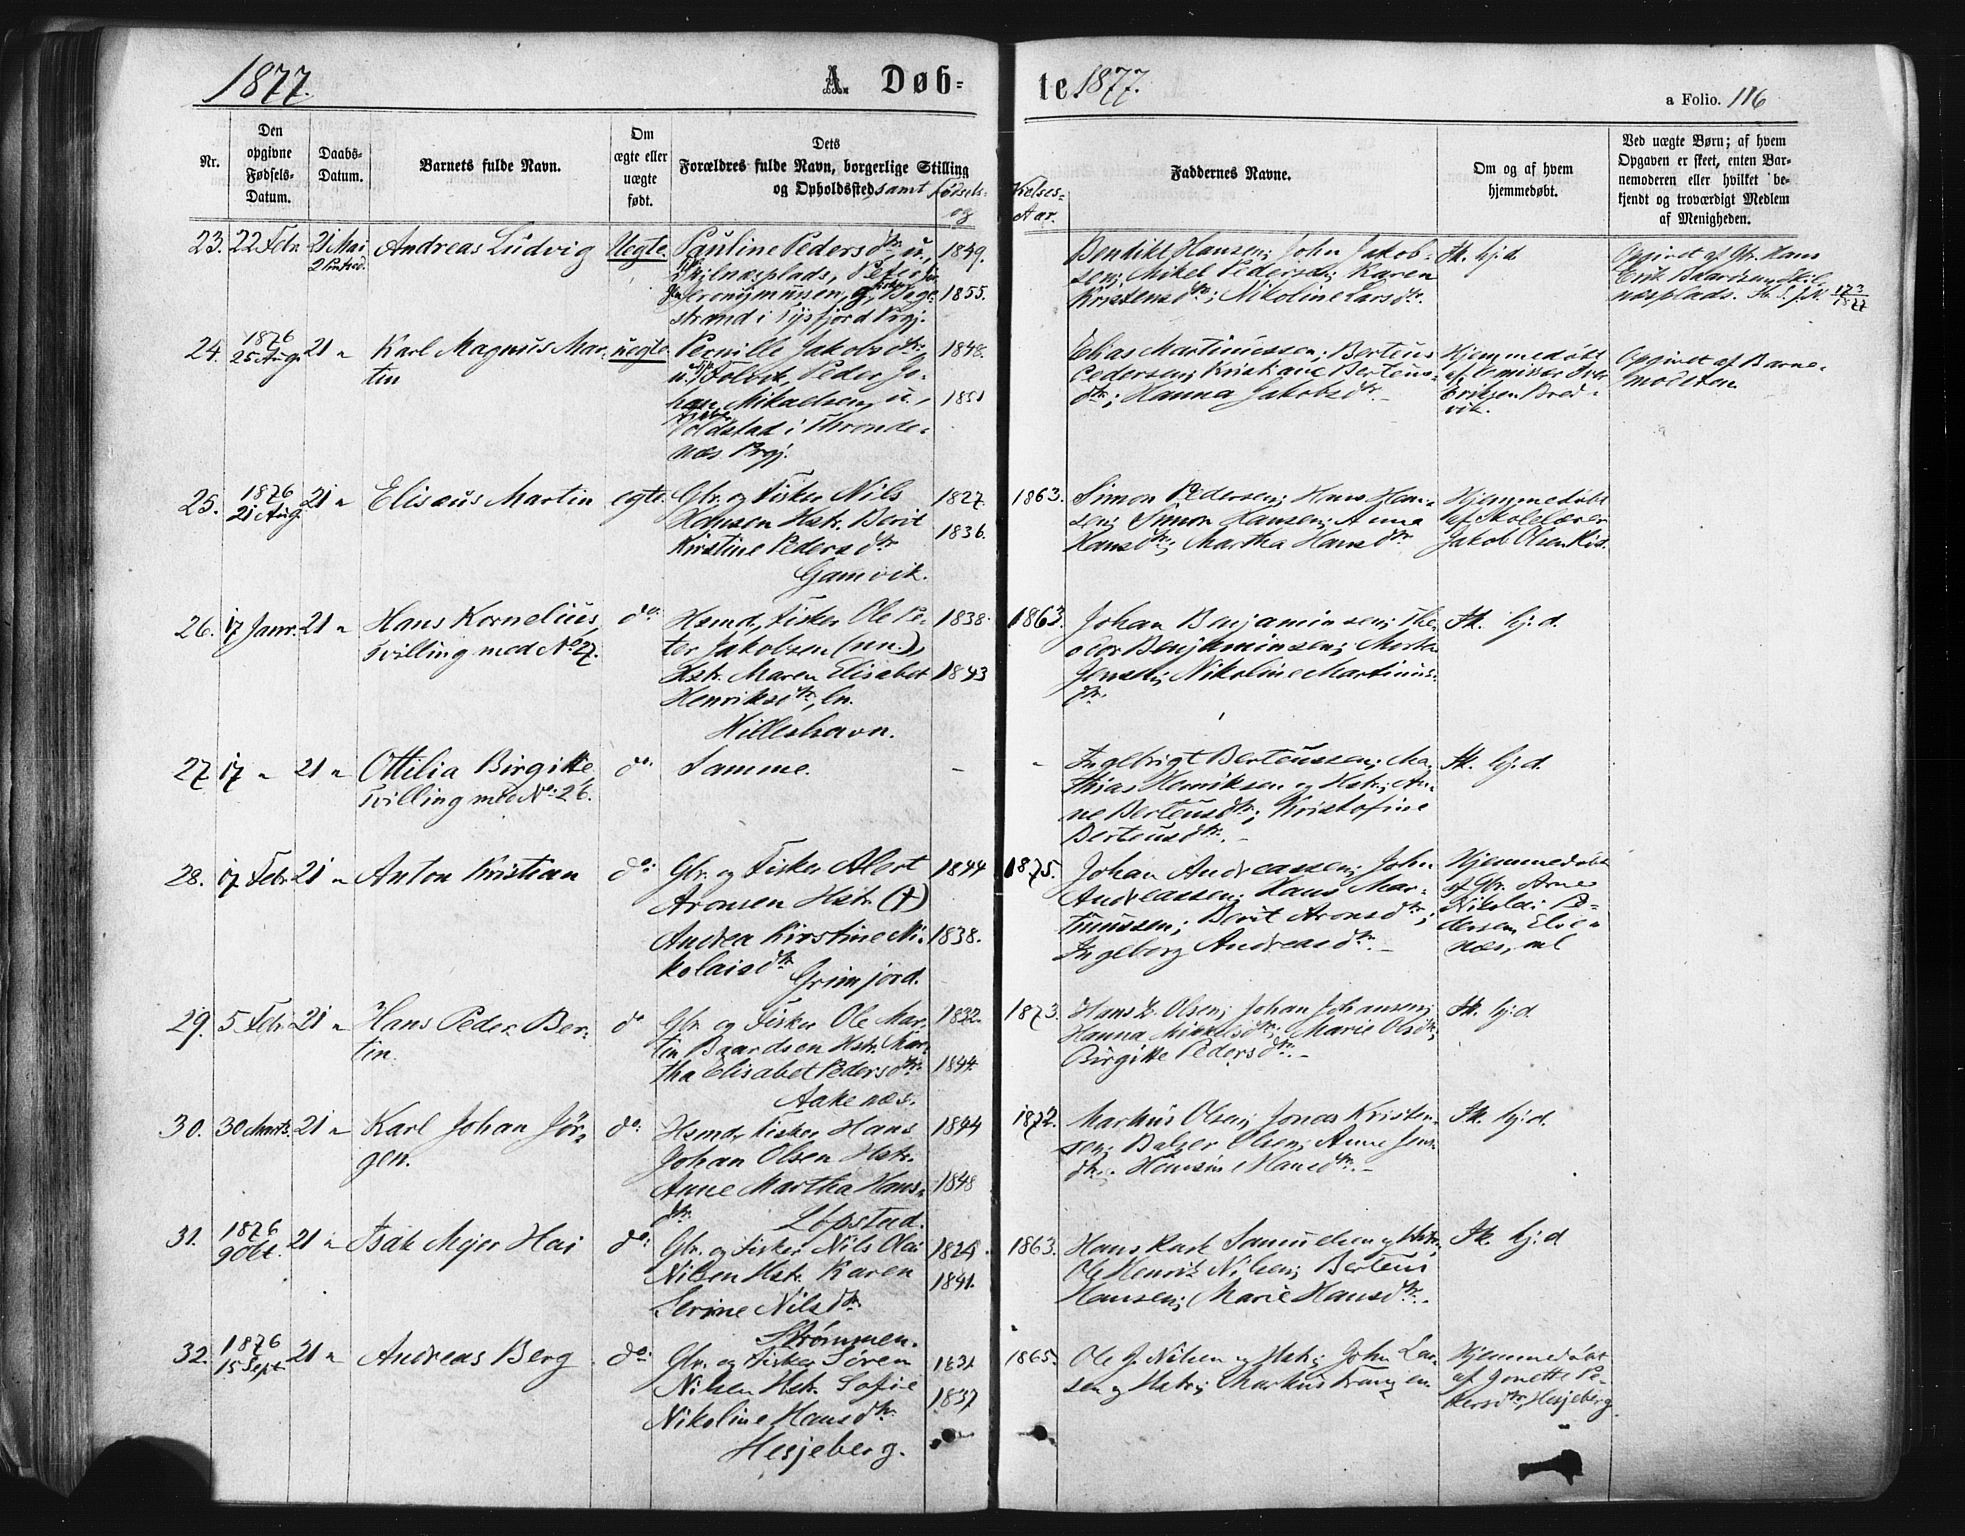 1877.
A. Døb-
te. 1877.
a Folio. 116
Nr.
Den
opgivne
Fødsels-
Datum.
Daabs-
Datum.
Barnets fulde Navn.
Om
ægte eller
uægte
født.
Dets
Forældres fulde Navn, borgerlige Stilling
og Opholdssted, samt Fødsels-
og
Kelses-
Aar.
Faddernes Navne.
Om og af hvem
hjemmedøbt.
Ved uægte Børn; af hvem
Opgaven er skeet, enten Bar-
nemoderen eller hvilket be-
kjendt og troværdigt Medlem
af Menigheden.
23. 22 Febr. 21 Mai Andreas Ludvig Uegte. Pauline Pedersdtr, u., 1849.
2 Pintsed.
Jeronymussen, g., 1855.
strand i Tysfjord Prgj.
Bendikt Hansen; John Jakob-
sen; Mikel Pedersen; Karen
Kristensdtr; Nikoline Larsdtr.
Ik. hj:d
Opgivet af Gbr. Hans
Erik Baardsen
næsplads. 173/1877
24. 1876
25 Aug. 21 " Karl Magnus Mar-
tin
uegte Pernille Jakobsdtr, 1848.
u., Peder Jo-
han Mikaelsen, u., 1851
Voldstad i Thronde-
næs Prgj.
Elias Martinussen; Berteus
Pedersen; Kristiane Berteus-
dtr; Hanna Jakobsdtr.
Hjemmedøbt
af
Eriksen Bred-
vik.
Opgivet af Barne-
moderen.
25. 1876
21 Aug. 21 " Elisæus Martin egte. Gbr. og Fisker Nils 1827.
Hansen Hstr. Berit
Kirstine Pedersdtr 1836.
Gamvik.
1863. Simon Pedersen; Hans Han-
sen; Simon Hansen; Anne
Hansdtr; Martha Hansdtr.
Hjemmedøbt
af Skolelærer
Jakob Olsen
26. 17 Janr. 21 " Hans Kornelius,
Tvilling med No 27.
do: Hsmd, Fisker Ole Pe- 1838.
ter Jakobsen (nn.),
Hstr. Maren Elisabet 1843
Henriksdtr, ln.
Hilleshavn.
1863. Johan Benjaminsen; The-
odor Benjaminsen;
Jensen; Nikoline Martinus-
dtr.
Ik. hj:d.
27. 17 " 21 " Ottilia Birgitte
Tvilling med No: 26.
do: Samme. –
– Ingebrigt Berteussen; Ma-
thias Henriksen og Hstr; An-
ne Berteusdtr; Kristofine
Berteusdtr. –
Ik. hj:d.
28. 17 Febr. 21 " Anton Kristian do: Gbr. og Fisker Albert 1844
Aronsen Hstr. (†)
Andrea Kirstine Ni- 1838.
kolaisdtr
Grimjord.
1875. Johan Andreassen; John
Andreassen; Hans Mar-
tinussen; Berit Aronsdtr;
Ingeborg Andreasdtr. –
Hjemmedøbt
af Gbr. Arne
Nikolai Pe-
dersen
29. 5 Febr. 21 " Hans Peder Ber-
tin.
do Gbr. og Fisker Ole Mar-
tin Baardsen Hstr. Mar-
tha Elisabet Pedersdtr. 1844.
Aakenæs.
1873. Hans Olsen; Johan Johansen;
Hanna Mikkelsdtr; Marie Olsdtr;
Birgitte Pedersdtr. –
Ik. hj:d
30. 30 Marts. 21 " Karl Johan Jør-
gen.
do: Hsmd, Fisker Hans 1844
Johan Olsen Hstr.
Anne Martha Hans- 1848
dtr. Løpstad.
1872. Markus Olsen; Jonas Kristen-
sen; Balzer Olsen; Anne Jens-
dtr; Hansine Hansdtr. –
Ik. hj:d.
31. 1876
9 Obt. 21 " Isak Mejer Hai do: Gbr. og Fisker Nils Olai
Nilsen Hstr. Karen 1841.
Serine Nilsdtr
Strømmen.
1863. Hans Samuelsen og Hstr;
Ole Henrik Nilsen; Berteus
Hansen; Marie Hansdtr.
Ik. hj:d
32. 1876
15 Sept. 21 " Andreas Berg do: Gbr. og Fisker Søren 1831
Nilsen Hstr. Sofie 1837
Nikoline Hansdtr.
Hesjeberg.
1865. Ole J. Nilsen og Hstr; John Lar-
sen og Hstr; Markus Franzen
Hjemmedøbt
af Jonette Pe-
dersdtr, Hesjeberg.